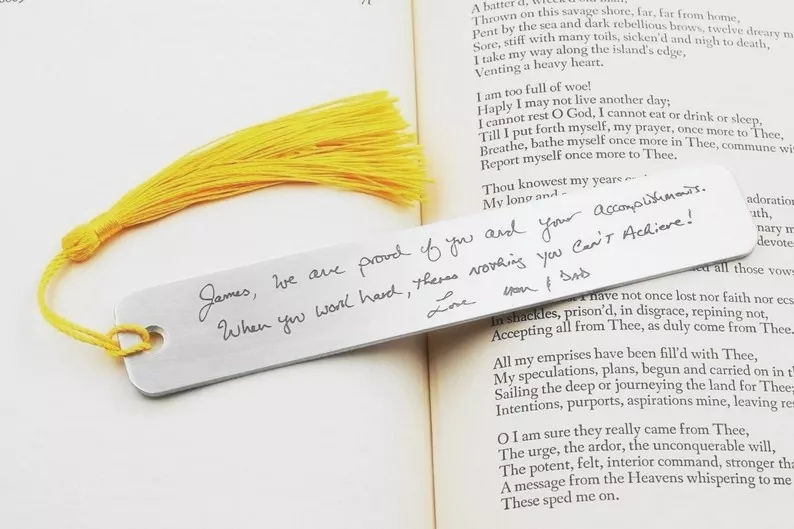 A batter'd, wreck'd old man,
Thrown on this savage shore, far, far from home,
Pent by the sea and dark rebellious brows, twelve dreary m
Sore, stiff with many toils, sicken'd and nigh to death,
I take my way along the island's edge,
Venting a heavy heart.
I am too full of woe!
Haply I may not live another day;
I cannot rest O God, I cannot eat or drink or sleep,
Till I put forth myself, my prayer, once more to Thee,
Breathe, bathe myself once more in Thee, commune wi
Report myself once more to Thee.
Thou knowest my years
My long and
adoration
nary m
devote
James, We are proud of you and your accomplishments.
When you work hard, theres nothing you Can't Achieve!
Love Mom & DAD
all those vows
have not once lost nor faith nor ecs
In shackles, prison'd, in disgrace, repining not,
Accepting all from Thee, as duly come from Thee.
All my emprises have been fill'd with Thee,
My speculations, plans, begun and carried on in th
Sailing the deep or journeying the land for Thee;
Intentions, purports, aspirations mine, leaving res
O I am sure they really came from Thee,
The urge, the ardor, the unconquerable will,
The potent, felt, interior command, stronger tha
A message from the Heavens whispering to me
These sped me on.